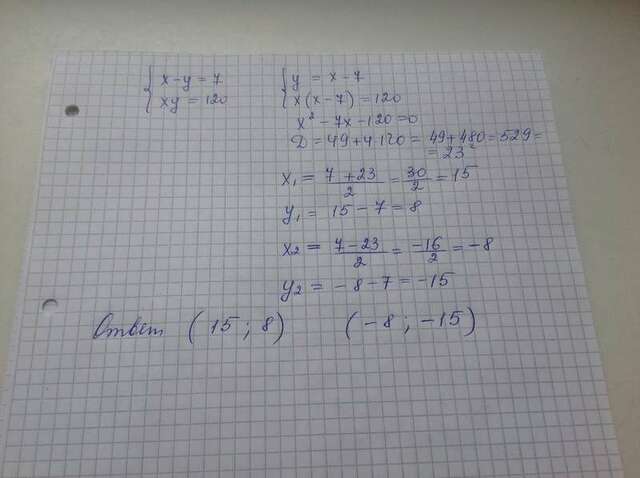 { x-y=7 { y = x-7
{ xy=120 { x(x-7)=120
x² - 7x - 120 = 0
D = 49+4·120 = 49+480 = 529 =
= 23²
x₁ = (7+23)/2 = 30/2 = 15
y₁ = 15-7 = 8
x₂ = (7-23)/2 = -16/2 = -8
y₂ = -8-7 = -15
Ответ (15; 8) (-8; -15)